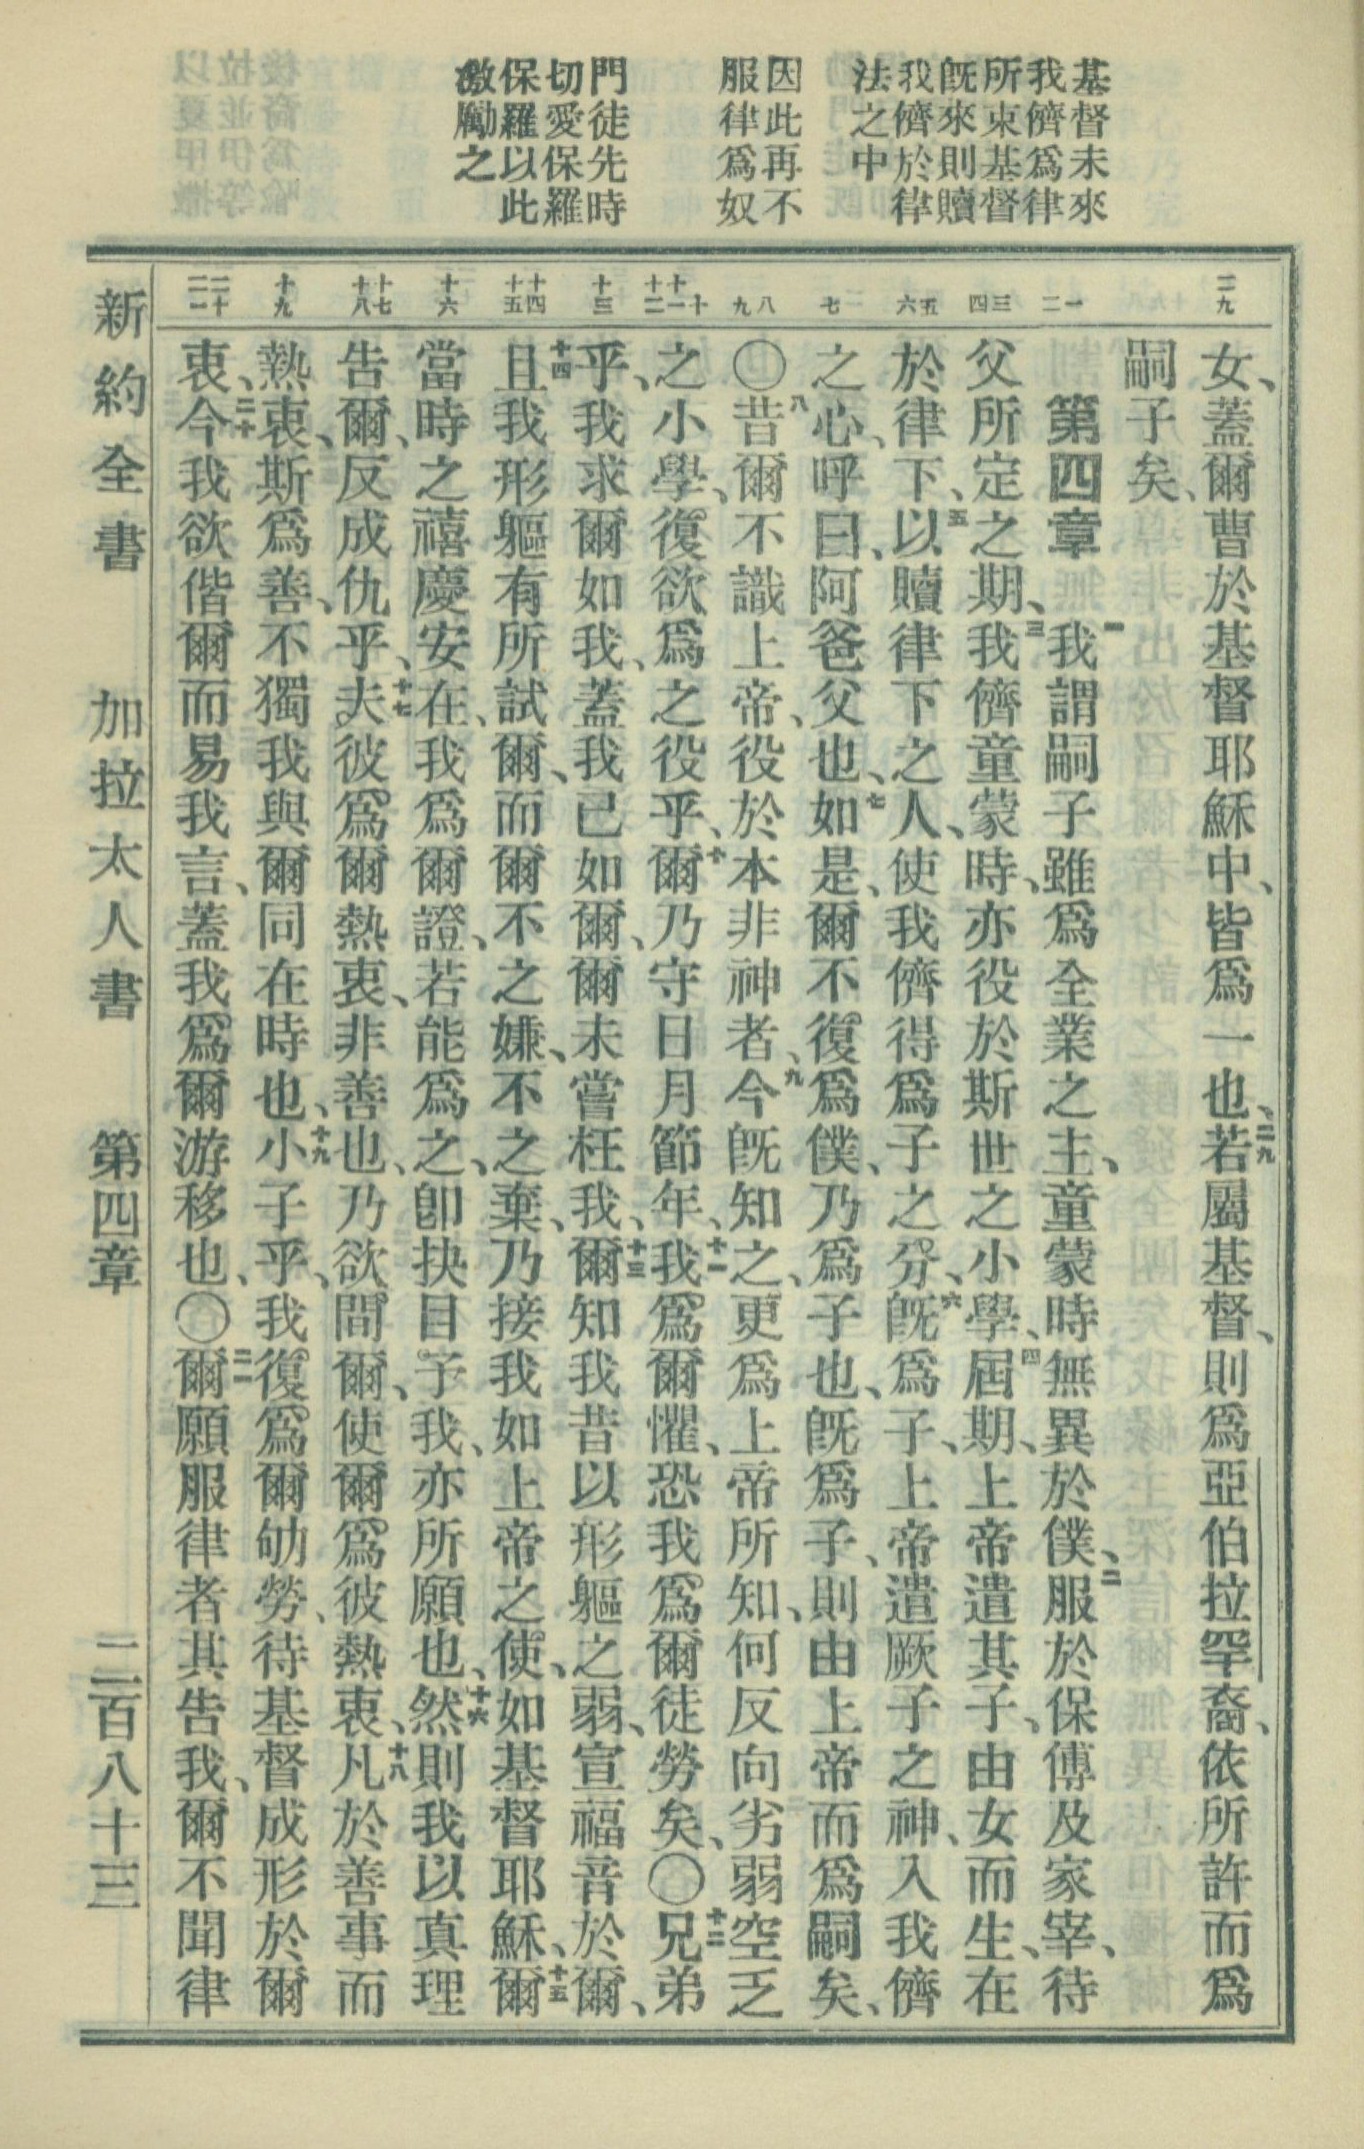 基督未來
我儕爲律
所束基督
旣來則贖
我儕於律
法之中
因此再不
服律爲奴
門徒先時
切愛保羅
保羅以此
激勵之
二九
一
二
三
四
五
六
七
八
九
十
十一
十二
十三
十四
十五
十六
十七
十八
十九
二十
二一
女、蓋爾曹於基督耶穌中、皆爲一也、二九若屬基督、則爲亞伯拉罕裔、依所許而爲
嗣子矣、
第四章 一我謂嗣子雖爲全業之主、童蒙時無異於僕、二服於保傅及家宰、待
父所定之期、三我儕童蒙時、亦役於斯世之小學、四屆期、上帝遣其子、由女而生、在
於律下、五以贖律下之人、使我儕得爲子之分、六旣爲子、上帝遣厥子之神、入我儕
之心、呼曰、阿爸父也、七如是、爾不復爲僕、乃爲子也、旣爲子、則由上帝而爲嗣矣、
〇八昔爾不識上帝、役於本非神者、九今旣知之、更爲上帝所知、何反向劣弱空乏
之小學、復欲爲之役乎、十爾乃守日月節年、十一我爲爾懼、恐我爲爾徒勞矣、〇十二兄弟
乎、我求爾如我、蓋我已如爾、爾未嘗枉我、十三爾知我昔以形軀之弱、宣福音於爾、
十四且我形軀有所試爾、而爾不之嫌、不之棄、乃接我如上帝之使、如基督耶穌、十五爾
當時之禧慶安在、我爲爾證、若能爲之、卽抉目予我、亦所願也、十六然則我以真理
告爾、反成仇乎、十七夫彼爲爾熱衷、非善也、乃欲間爾、使爾爲彼熱衷、十八凡於善事而
熱衷、斯爲善、不獨我與爾同在時也、十九小子乎、我復爲爾劬勞、待基督成形於爾
衷、二十今我欲偕爾而易我言、蓋我爲爾游移也、〇二一爾願服律者其告我、爾不聞律
新約全書 加拉太人書 第四章 二百八十三